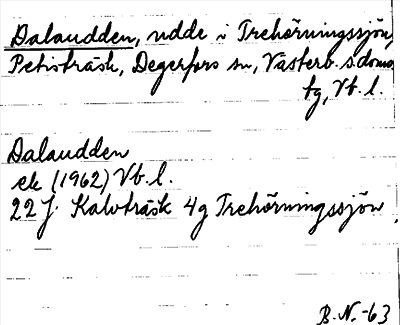 Dalaudden, udde i Trehörningssjön,
Petisträsk, Degerfors sn, Västerb. s. doms
tg, Vb. l.
Dalaudden
ek (1962) Vb. l.
22 J Kalvträsk 4g Trehörningssjön
B.N.-63